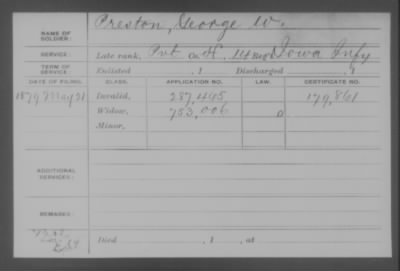 NAME OF SOLDIER: Preston, George W.
SERVICE: Late rank, Pvt Co K, 14 Reg Iowa Infy
TERM OF SERVICE: Enlisted , 1 Discharged , 1
DATE OF FILING. CLASS. APPLICATION NO. LAW. CERTIFICATE NO.
1879 May 21 Invalid, 287,465 179,861
Widow, 753,006
Minor,
ADDITIONAL SERVICES:
REMARKS:
Died , 1 , at